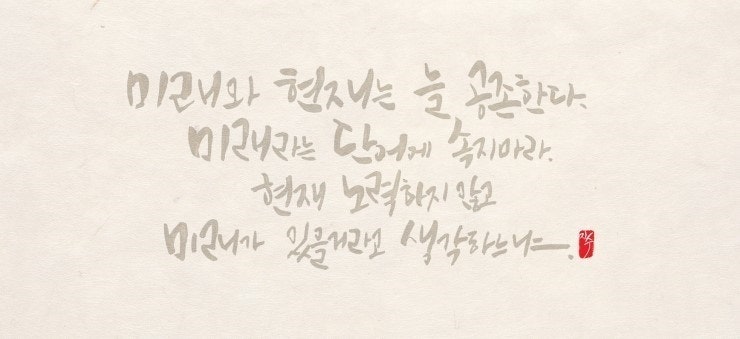 미래와 현재는 늘 공존한다.
미래라는 단어에 속지마라.
현재 노력하지 않고
미래가 있을거라고 생각하느냐.